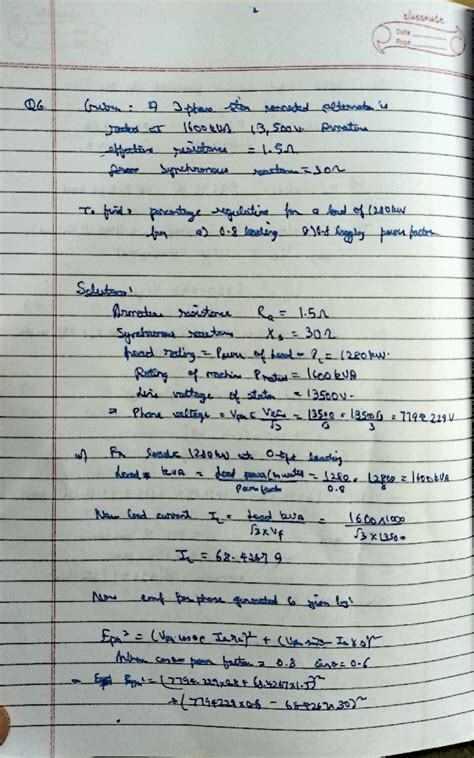 classmate
Date
Page
Q6 Given : 3 phase star connected alternator is
rated at 1600 kVA 13,500V. Armature
effective resistance = 1.5Ω
synchronous reactance = 30Ω
To find : percentage regulation for a load of 1280 kW
for a) 0.8 leading b) 0.8 lagging power factor
Solution:
Armature resistance Ra = 1.5Ω
Synchronous reactance Xs = 30Ω
Load rating = Power of load = PL = 1280 kW.
Rating of machine Prated = 1600 kVA
Line voltage of stator = 13500V.
⇒ Phase voltage = Vph = = 13500 = = 7794.229 V
√3 3
a) For load = 1280 kW at leading
Load kVA = Load power (in watts) = 1280 = = 1600 kVA
Power factor 0.8
Now load current IL = Load kVA = 1600×1000
√3 × √3 × 13500
IL = 68.4267 A
Now emf per phase generated is given by:
Eph² = (Vph cosφ IaRa)² + (Vph sinφ - )²
When cosφ = power factor = 0.8 sinφ = 0.6
Eph² = (7794.229×0.8 + 68.4267×1.5)²
+ (7794.229×0.6 - 68.4267×30)²